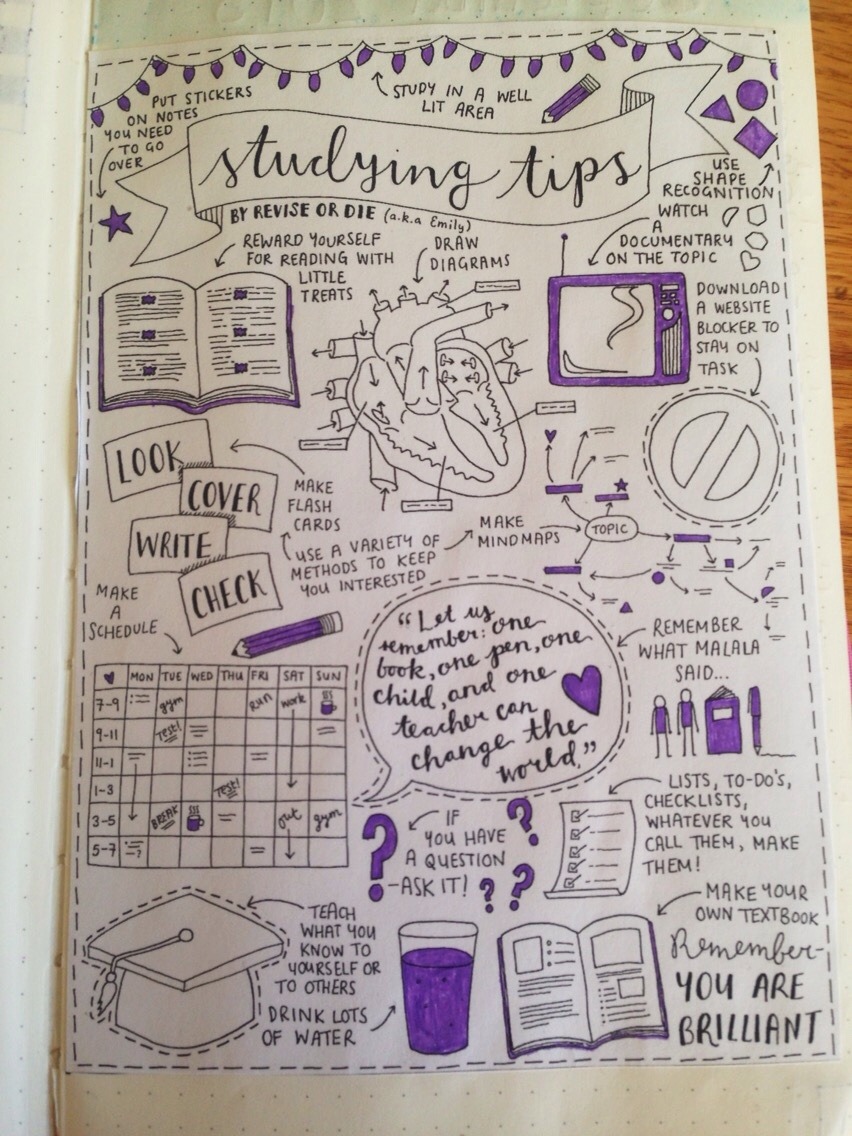 PUT STICKERS
ON NOTES
YOU NEED
TO GO
OVER
STUDY IN A WELL
LIT AREA
studying tips
BY REVISE OR DIE (a.k.a Emily)
USE
SHAPE
RECOGNITION
REWARD YOURSELF
FOR READING WITH
LITTLE
TREATS
DRAW
DIAGRAMS
WATCH
A
DOCUMENTARY
ON THE TOPIC
DOWNLOAD
A WEBSITE
BLOCKER TO
STAY ON
TASK
LOOK
COVER
WRITE
CHECK
MAKE
FLASH
CARDS
USE A VARIETY OF
METHODS TO KEEP
YOU INTERESTED
MAKE
MINDMAPS
TOPIC
MAKE
A
SCHEDULE
MON TUE WED THU FRI SAT SUN
7-9 gym run work
9-11 TEST!
11-1
1-3 TEST!
3-5 BREAK out gym
5-7 ?
"Let us
remember: one
book, one pen, one
child, and one
teacher can
change the
world."
REMEMBER
WHAT MALALA
SAID...
? IF
YOU HAVE
A QUESTION
-ASK IT!
? ? ?
LISTS, TO-DO'S,
CHECKLISTS,
WHATEVER YOU
CALL THEM, MAKE
THEM!
TEACH
WHAT YOU
KNOW TO
YOURSELF OR
TO OTHERS
DRINK LOTS
OF WATER
MAKE YOUR
OWN TEXTBOOK
Remember-
YOU ARE
BRILLIANT